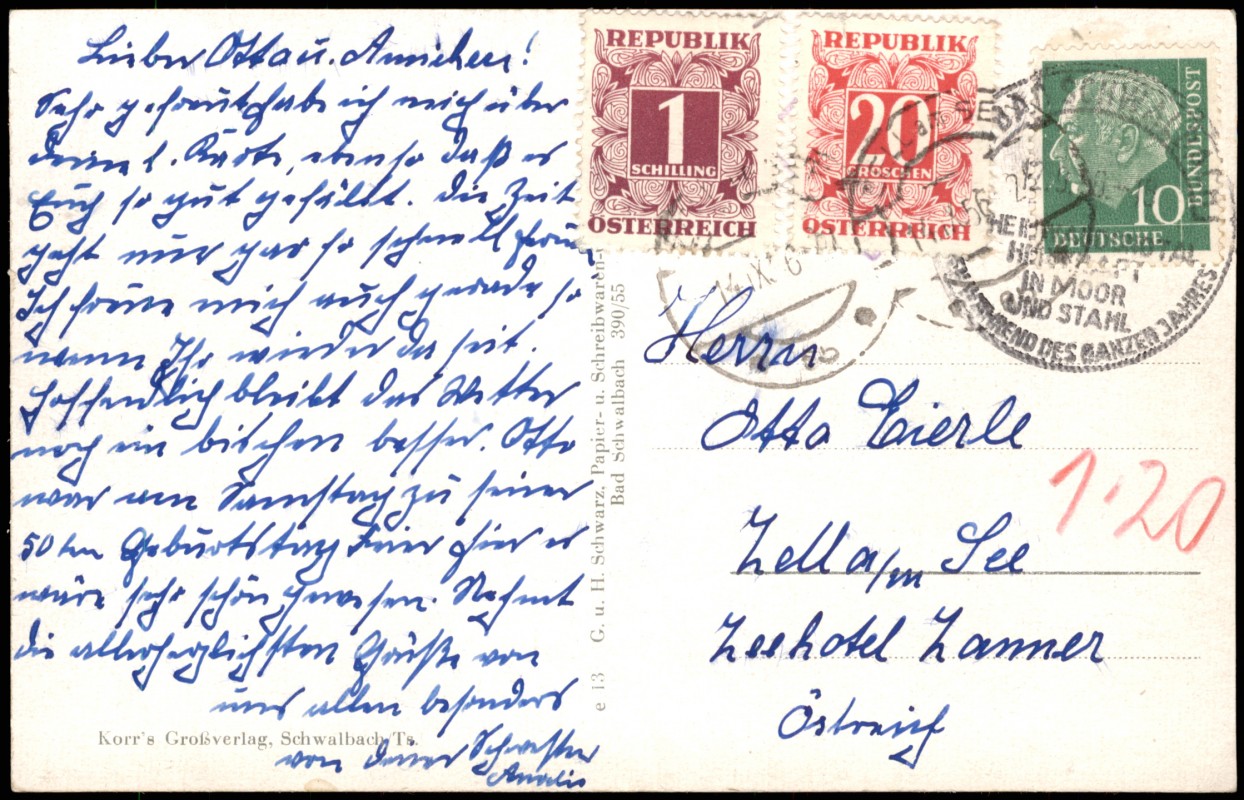 Lieber Otto u. Annichen!
Sehr gefreut habe ich mich über
deine l. Karte, ebenso daß es
Euch so gut gefällt. Die Zeit
geht nur gar so schnell herum
Ich freue mich auch gerade so
wenn Ihr wieder da seit.
Hoffendlich bleibt das Wetter
noch ein bischen besser. Otto
war am Samstag zu seiner
50ten Geburtstag Feier hier es
wäre sehr schön gewesen. Nehmt
die allerherzlichsten Grüße von
uns allen besonders
von deiner Schwester
Korr's Großverlag, Schwalbach/Ts.
e 13 G. u. H. Schwarz, Papier- u. Schreibwaren-
Bad Schwalbach 390/55
REPUBLIK
1
SCHILLING
ÖSTERREICH
REPUBLIK
20
GROSCHEN
ÖSTERREICH
BUNDESPOST
10
DEUTSCHE
IN MOOR
UND STAHL
WÄHREND DES GANZEN JAHRES
14.IX.
Herrn
Otto Eierle
Zell a/m See
Seehotel Zanner
Östreich
1·20